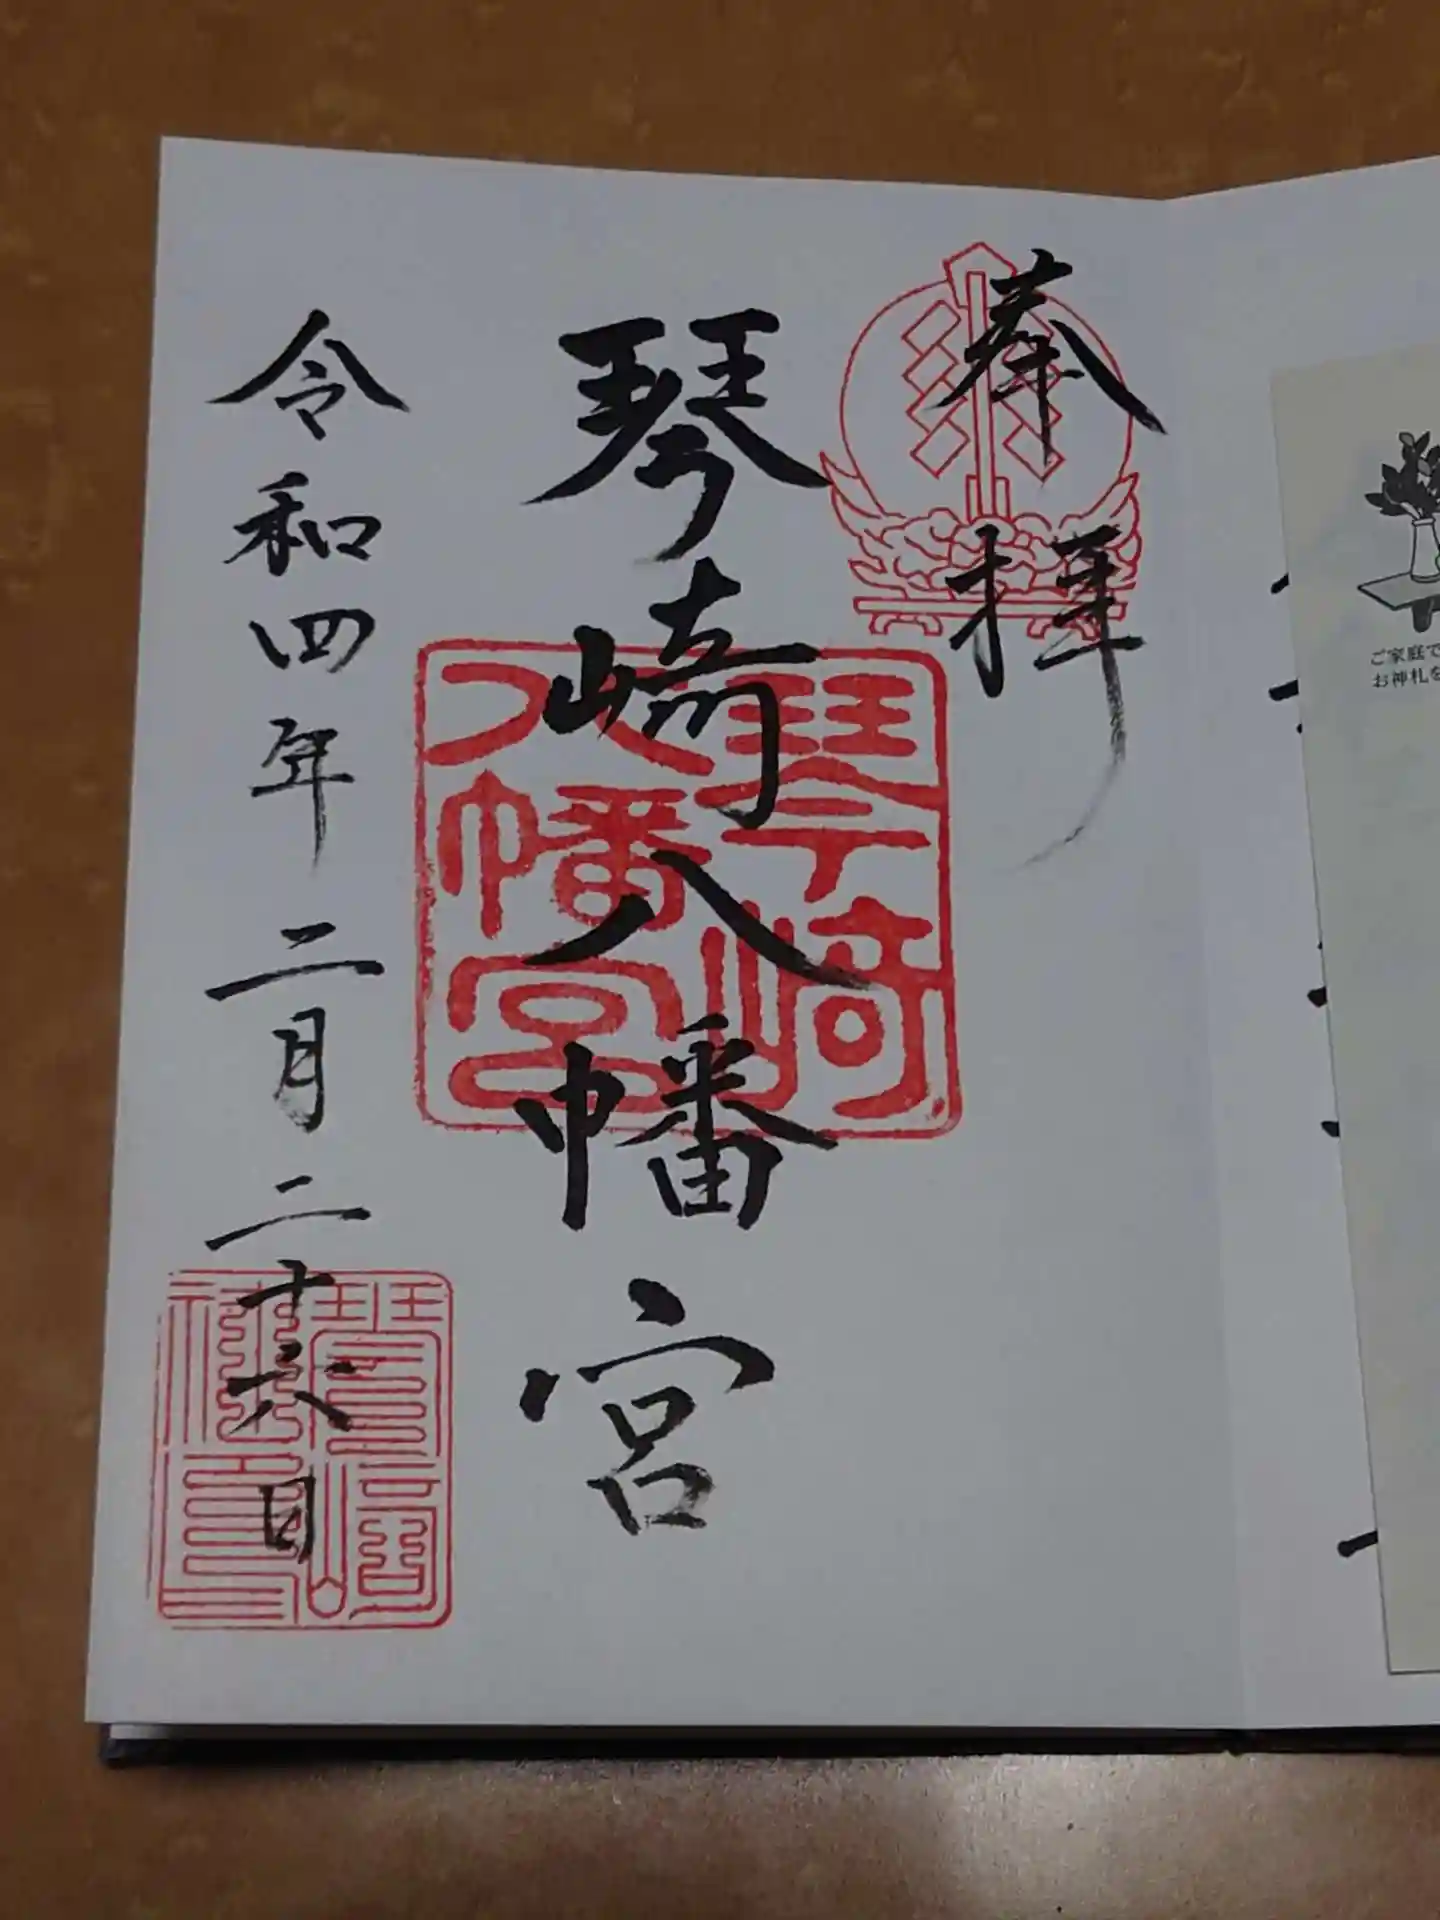 奉拝
琴崎八幡宮
琴崎
八幡宮
令和四年二月二十六日
ご家庭で
お神札を